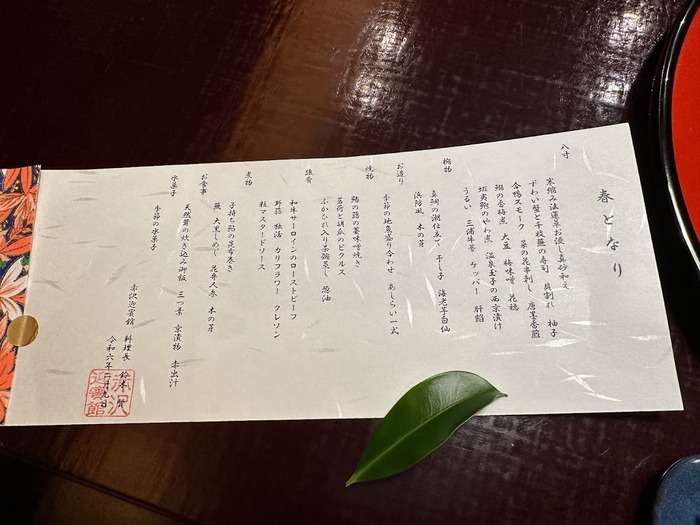 春となり
八寸
寒縮み法蓮草お浸し真砂和え 貝割れ 柚子
ずわい蟹と千枚蕪の寿司 菜の花串刺し 唐墨香煎
合鴨スモーク 梅味噌 花穂
鰯の香梅煮 大豆 温泉玉子の西京漬け
蝦夷鮑のやわ煮 ケッパー 肝餡
うるい 三浦牛蒡
椀物
真鯛の潮仕立て 干し子 海老芋白仙
浜防風 木の芽
お造り
季節の地魚盛り合わせ あしらい一式
焼物
鰆の蕗の薹味噌焼き
茗荷と胡瓜のピクルス
ふかひれ入り茶碗蒸し 葱油
強肴
和牛サーロインのローストビーフ
野蒜 独活 カリフラワー クレソン
粒マスタードソース
煮物
子持ち鮎の昆布巻き
蕪 大黒しめじ 花弁人参 木の芽
お食事
天然鯛の炊き込み御飯 三つ葉 京漬物 赤出汁
水菓子
季節の水菓子
赤沢迎賓館
料理長 鈴木
令和六年二月九日
赤沢迎賓館